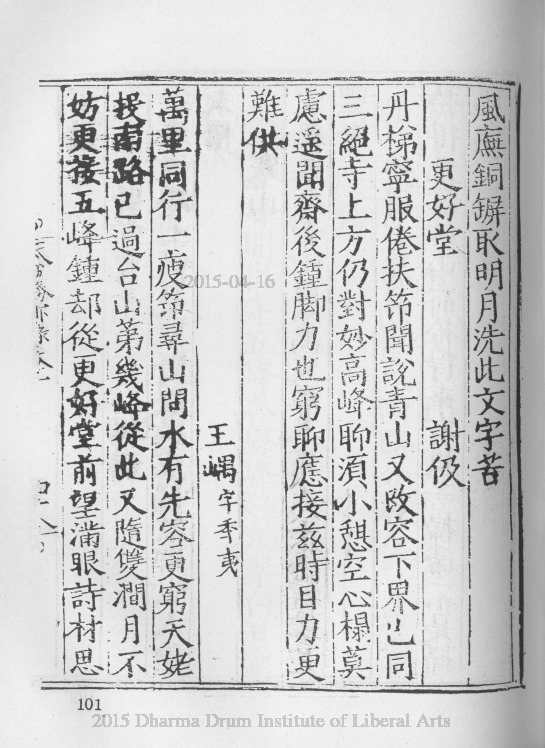 風廡銅取明月洗此文字苦
更好堂 謝伋
丹梯寧服倦扶笻聞說青山又改容下界已同
三絕寺上方仍對妙高峰聊湏小憩空心榻莫
慮遥聞齋後鍾脚力也窮聊應接茲時目力更
難供
王嵎字季夷
萬里同行一瘦笻尋山問水有先容更窮天姥
投南路已過台山第幾峰從此又隨雙澗月不
妨更接五峰鍾却從更好堂前望滿眼詩材思
101
2015-04-16
2015 Dharma Drum Institute of Liberal Arts